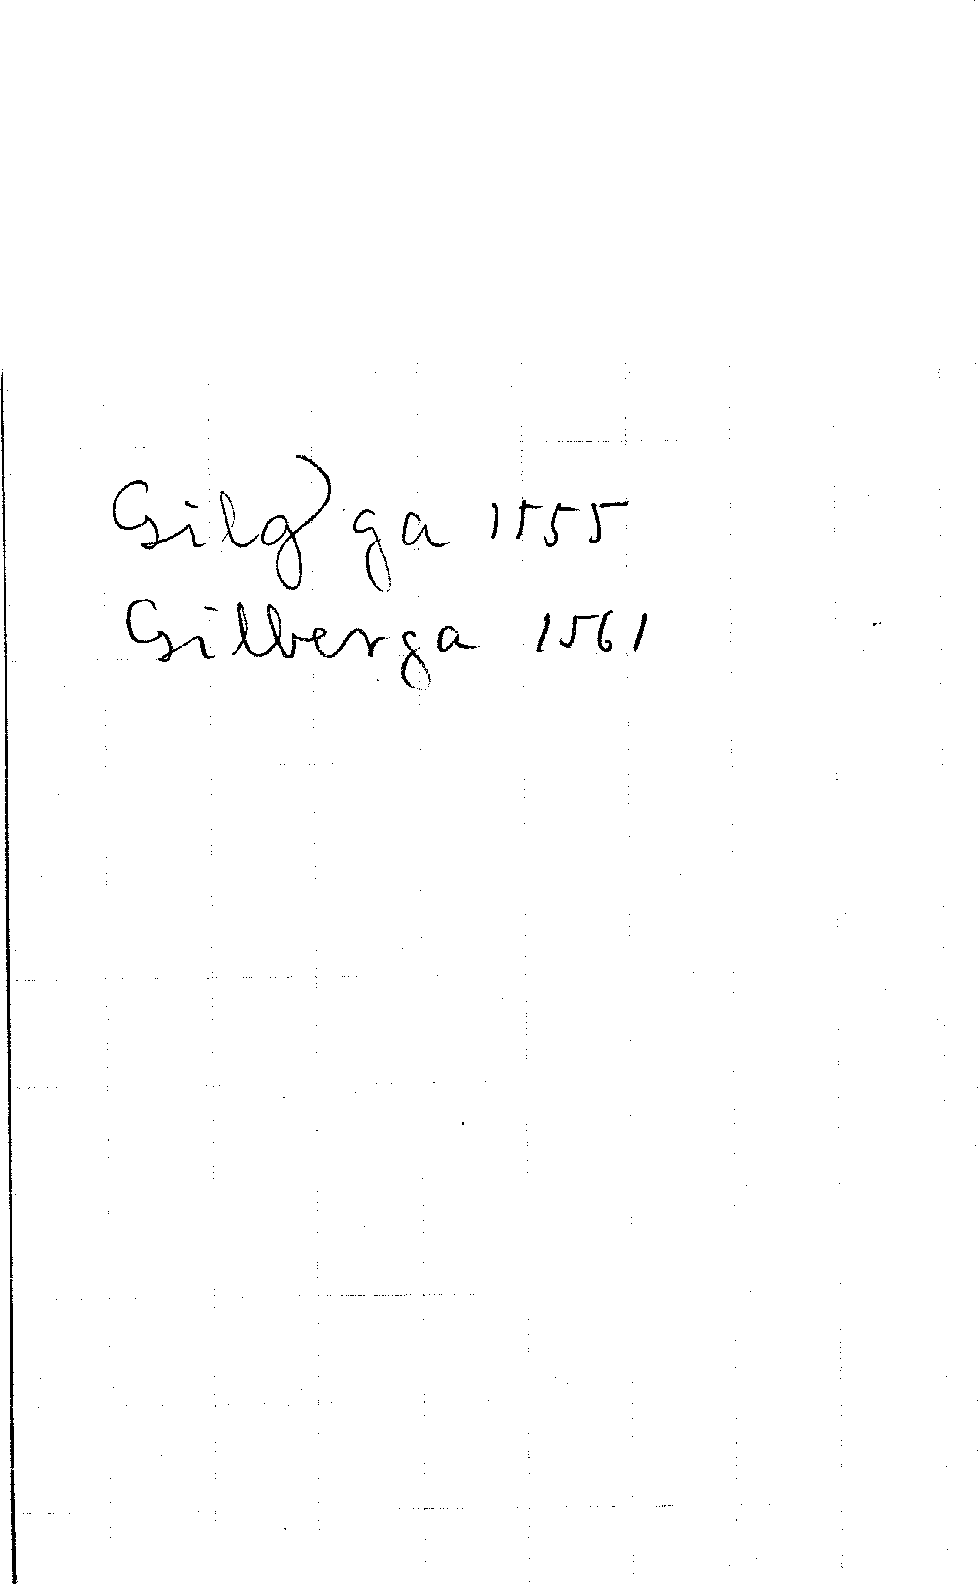 Gilg ga 1555
Gilberga 1561